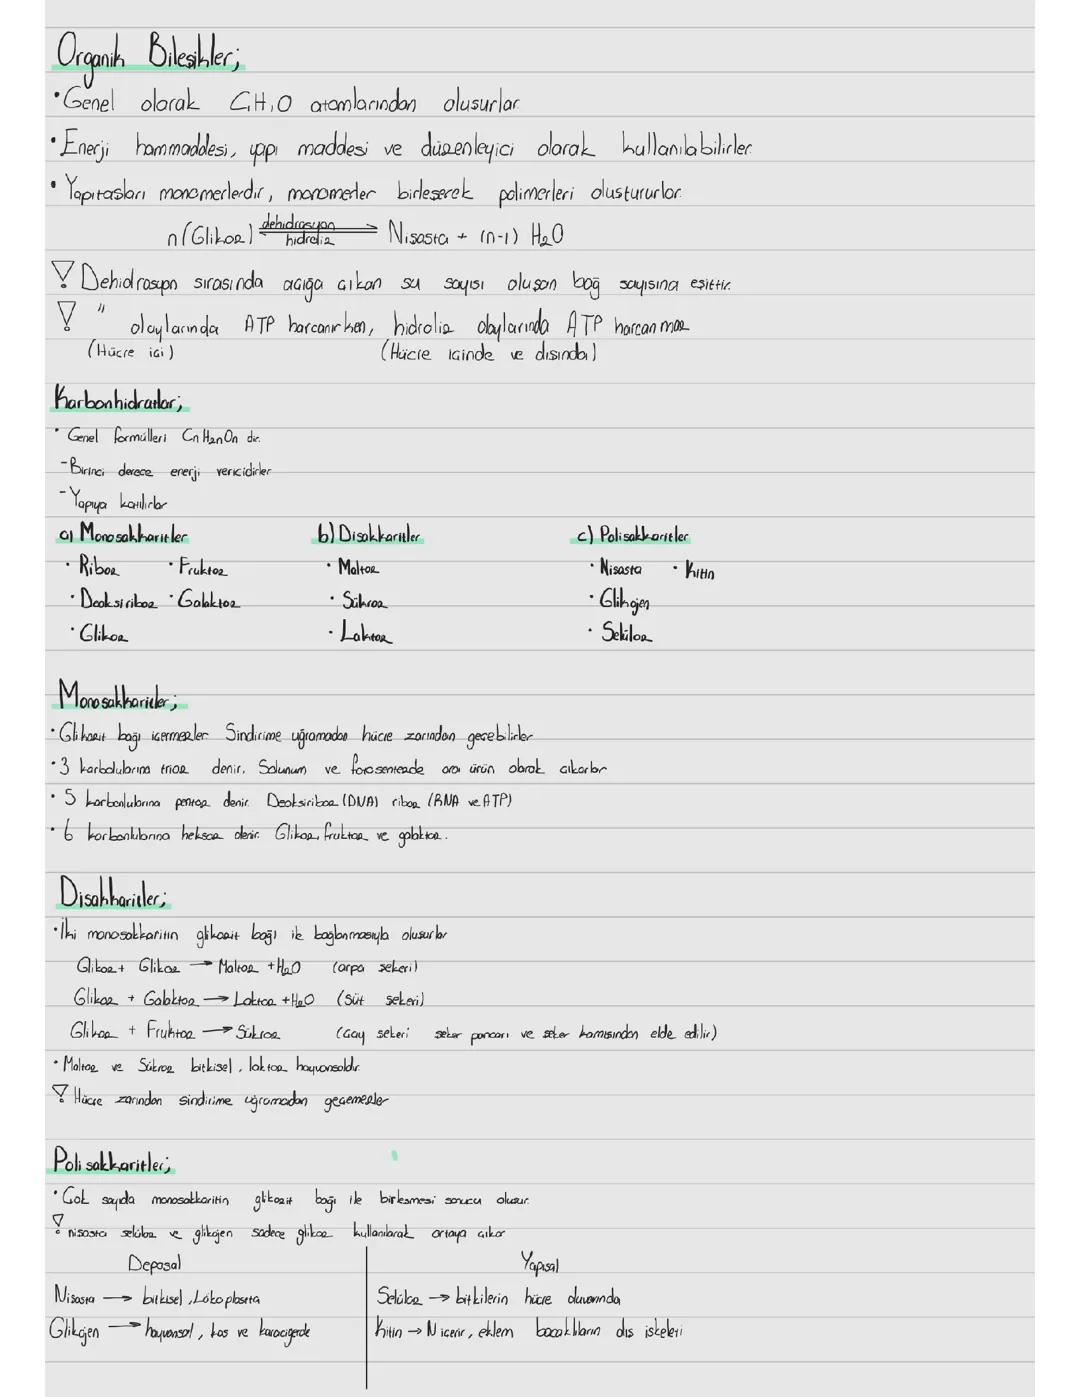 Organik Bileşikler;
• Genel olarak C,H,O atomlarından oluşurlar.
• Enerji hammaddesi, yapı maddesi ve düzenleyici olarak kullanılabilirler.
• Yapıtaşları monomerlerdir, monomerler birleşerek polimerleri oluştururlar.
n(Glikoz) dehidrasyon hidroliz Nişasta + (n-1) H₂O
! Dehidrasyon sırasında açığa çıkan su sayısı oluşan bağ sayısına eşittir.
! " olaylarında ATP harcanırken, hidroliz olaylarında ATP harcanmaz
(Hücre içi) (Hücre içinde ve dışında)
Karbonhidratlar;
• Genel formülleri CnH2nOn dir.
- Birinci derece enerji vericidirler
- Yapıya katılırlar
a) Monosakkaritler b) Disakkaritler c) Polisakkaritler
• Riboz • Fruktoz • Maltoz • Nişasta • Kitin
• Deoksiriboz • Galaktoz • Sükroz • Glikojen
• Glikoz • Laktoz • Selüloz
Monosakkaritler;
• Glikozit bağı içermezler. Sindirime uğramadan hücre zarından geçebilirler
• 3 karbolularına trioz denir. Solunum ve fotosentezde ara ürün olarak çıkarlar
• 5 karbonlularına pentoz denir. Deoksiriboz (DNA) riboz (RNA ve ATP)
• 6 karbonlularına heksoz denir. Glikoz, fruktoz ve galaktoz.
Disakkaritler;
• İki monosakkaritin glikozit bağı ile bağlanmasıyla oluşurlar
Glikoz + Glikoz → Maltoz + H₂O (arpa şekeri)
Glikoz + Galaktoz → Laktoz + H₂O (Süt şekeri)
Glikoz + Fruktoz → Sükroz (Çay şekeri şeker pancarı ve şeker kamışından elde edilir)
• Maltoz ve Sükroz bitkisel, laktoz hayvansaldır.
! Hücre zarından sindirime uğramadan geçemezler
Polisakkaritler;
• Çok sayıda monosakkaritin glikozit bağı ile birleşmesi sonucu oluşur.
! nişasta selüloz ve glikojen sadece glikoz kullanılarak ortaya çıkar
Deposal Yapısal
Nişasta → bitkisel, Lökoplastta Selüloz → bitkilerin hücre duvarında
Glikojen → hayvansal, kas ve karaciğerde Kitin → N içerir, eklem bacaklıların dış iskeleti